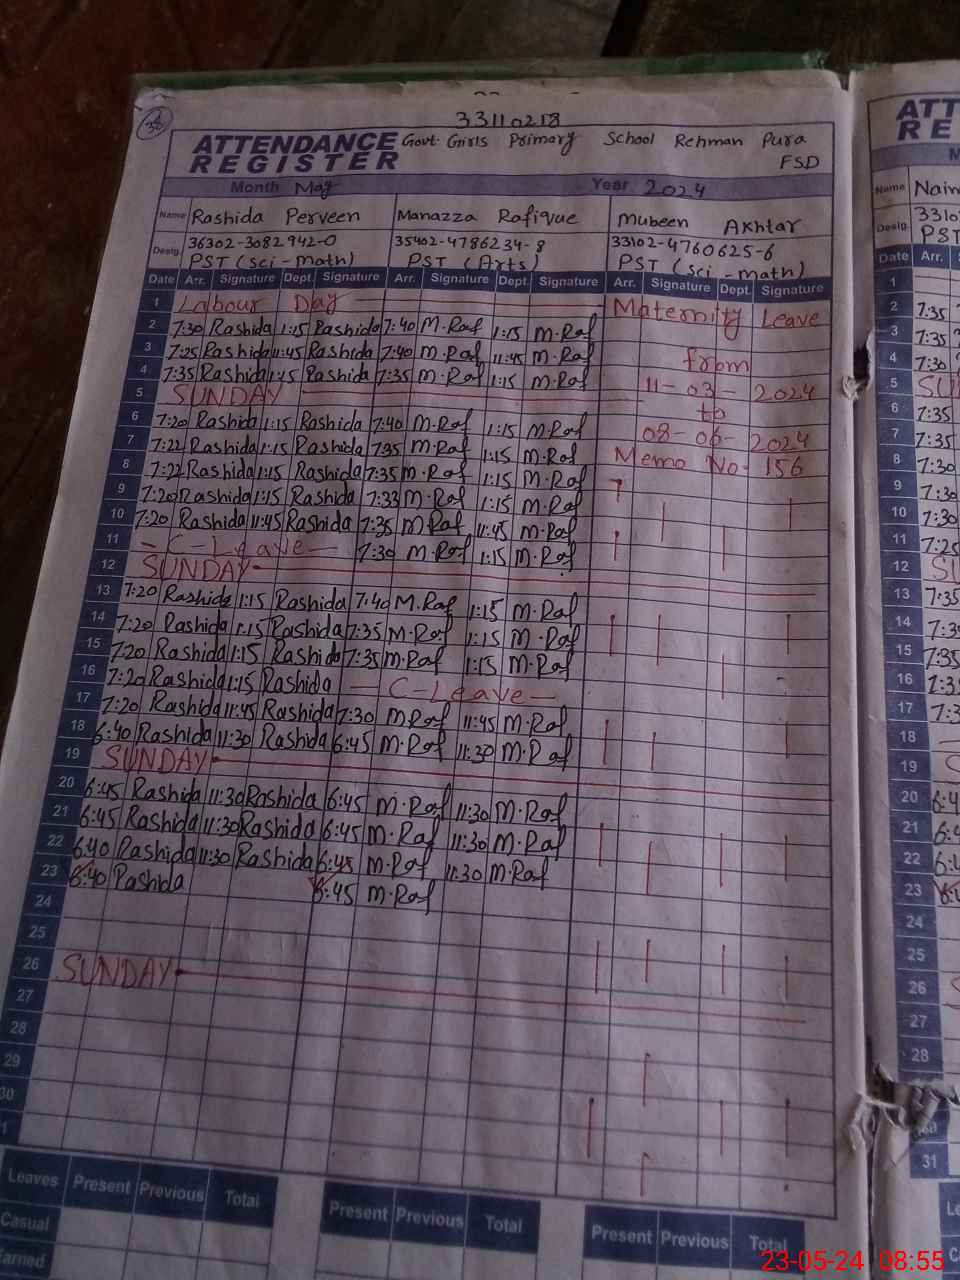 33110218
ATTENDANCE REGISTER Govt. Girls Primary School Rehman Pura FSD
Month May Year 2024
Name Rashida Perveen Manazza Rafique Mubeen Akhtar
Desig. 36302-3082942-0 35402-4786234-8 33102-4760625-6
PST (sci-math) PST (Arts) PST (sci-math)
Date Arr. Signature Dept. Signature Arr. Signature Dept. Signature Arr. Signature Dept. Signature
1 Labour Day Maternity Leave
2 7:30 Rashida 1:15 Rashida 7:40 M.Raf 1:15 M.Raf
3 7:25 Rashida 11:45 Rashida 7:40 M.Raf 11:45 M.Raf from
4 7:35 Rashida 1:15 Rashida 7:35 M.Raf 1:15 M.Raf 11-03-2024
5 SUNDAY to
6 7:20 Rashida 1:15 Rashida 7:40 M.Raf 1:15 M.Raf 08-06-2024
7 7:22 Rashida 1:15 Rashida 7:35 M.Raf 1:15 M.Raf Memo No. 156
8 7:22 Rashida 1:15 Rashida 7:35 M.Raf 1:15 M.Raf
9 7:20 Rashida 1:15 Rashida 7:33 M.Raf 1:15 M.Raf
10 7:20 Rashida 11:45 Rashida 7:35 M.Raf 11:45 M.Raf
11 - C-Leave - 7:30 M.Raf 1:15 M.Raf
12 SUNDAY
13 7:20 Rashida 1:15 Rashida 7:40 M.Raf 1:15 M.Raf
14 7:20 Rashida 1:15 Rashida 7:35 M.Raf 1:15 M.Raf
15 7:20 Rashida 1:15 Rashida 7:35 M.Raf 1:15 M.Raf
16 7:20 Rashida 1:15 Rashida - C-Leave -
17 7:20 Rashida 11:45 Rashida 7:30 M.Raf 11:45 M.Raf
18 6:40 Rashida 11:30 Rashida 6:45 M.Raf 11:30 M.Raf
19 SUNDAY
20 6:45 Rashida 11:30 Rashida 6:45 M.Raf 11:30 M.Raf
21 6:45 Rashida 11:30 Rashida 6:45 M.Raf 11:30 M.Raf
22 6:40 Rashida 11:30 Rashida 6:45 M.Raf 11:30 M.Raf
23 6:40 Rashida 6:45 M.Raf
24
25
26 SUNDAY
27
28
29
30
Leaves Present Previous Total Present Previous Total Present Previous Total
Casual
Name
Desig. PST
Date Arr.
1
2 7:35
3 7:35
4 7:30
5
6 7:35
7 7:35
8 7:30
9 7:30
10 7:30
11 7:25
12
13 7:35
14
15 7:35
16
17
18
19
20
21
22
23
24
25
26
27
28
31
23-05-24 08:55